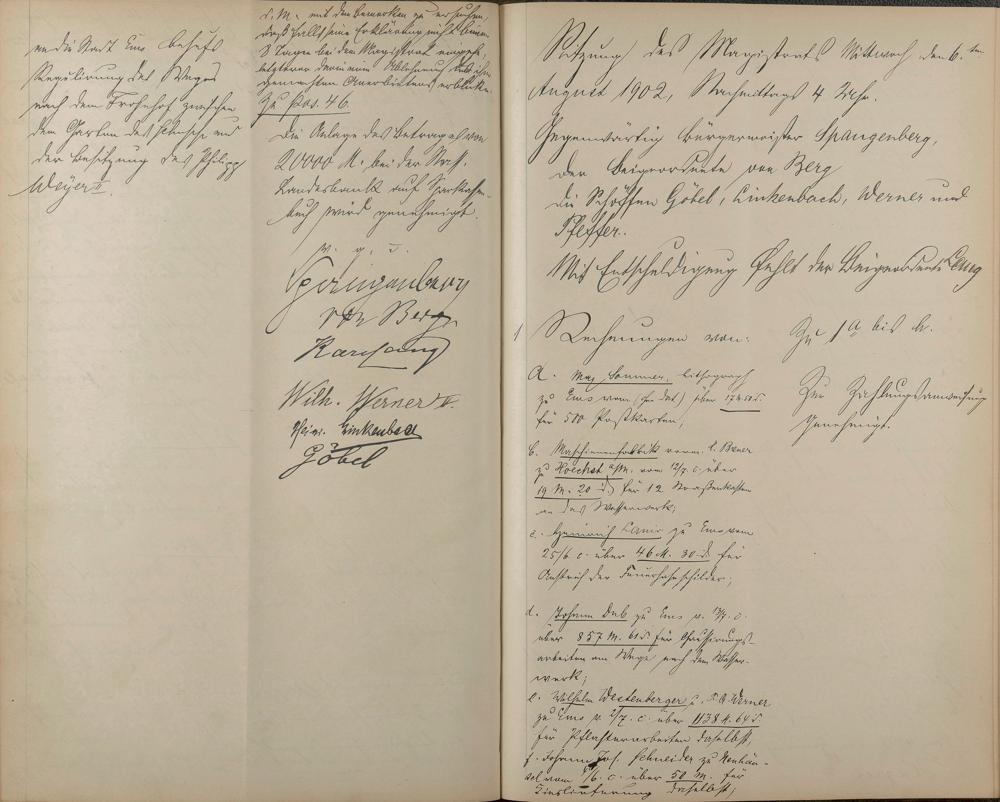 an die Stadt Ems behufs
Regulirung des Weges
nach dem Frohnhof zwischen
dem Garten des und
der Besitzung des Philipp
Weyer II.
d. M. mit dem Bemerken zu ersuchen,
daß falls seine Erklärung nicht binnen
8 Tagen bei dem Magistrat eingeht,
letzterer darin eine Ablehnung des ihm
gemachten Anerbietens erblicke.
Zu pos. 46.
Die Anlage des Betrages von
20000 M. bei der Nass.
Landesbank auf Sparkassen-
buch wird genehmigt.
v. g. u.
Spangenberg
von Berg
Karl Lang
Wilh. Werner II.
Heinr. Linkenbach
Göbel
Sitzung des Magistrats Mittwoch den 6.ten
August 1902, Nachmittags 4 Uhr.
Gegenwärtig Bürgermeister Spangenberg,
der Beigeordnete von Berg
die Schöffen Göbel, Linkenbach, Werner und
Pfeffer.
Mit Entschuldigung fehlt der Beigeordnete Lang
1 Rechnungen von:
a. Max Sommer, Lithograph
zu Ems vom über 17 M 50 d.
für 500 Postkarten,
b. Maschinenfabrik vorm.
zu Höchst a/M. vom 12/7. c. über
19 M. 20 d. für 12 Straßenkasten
an das Wasserwerk;
c. Heinrich zu Ems vom
25/6 c. über 46 M. 30 d. für
Anstrich der
d. Johann zu Ems v. c.
über 857 M. 61 d. für Chaussirungs-
arbeiten am Wege nach dem Wasser-
werk;
e. Wilhelm Westenberger u. Werner
zu Ems v. 2/7. c. über 1138 M. 64 d
für Pflasterarbeiten daselbst,
f. Johann Jos. Schneider zu Neuhäu-
sel vom /6. c. über 50 M. für
Kieslieferung daselbst;
Zu 1 a bis h.
Zur Zahlungsanweisung
genehmigt.